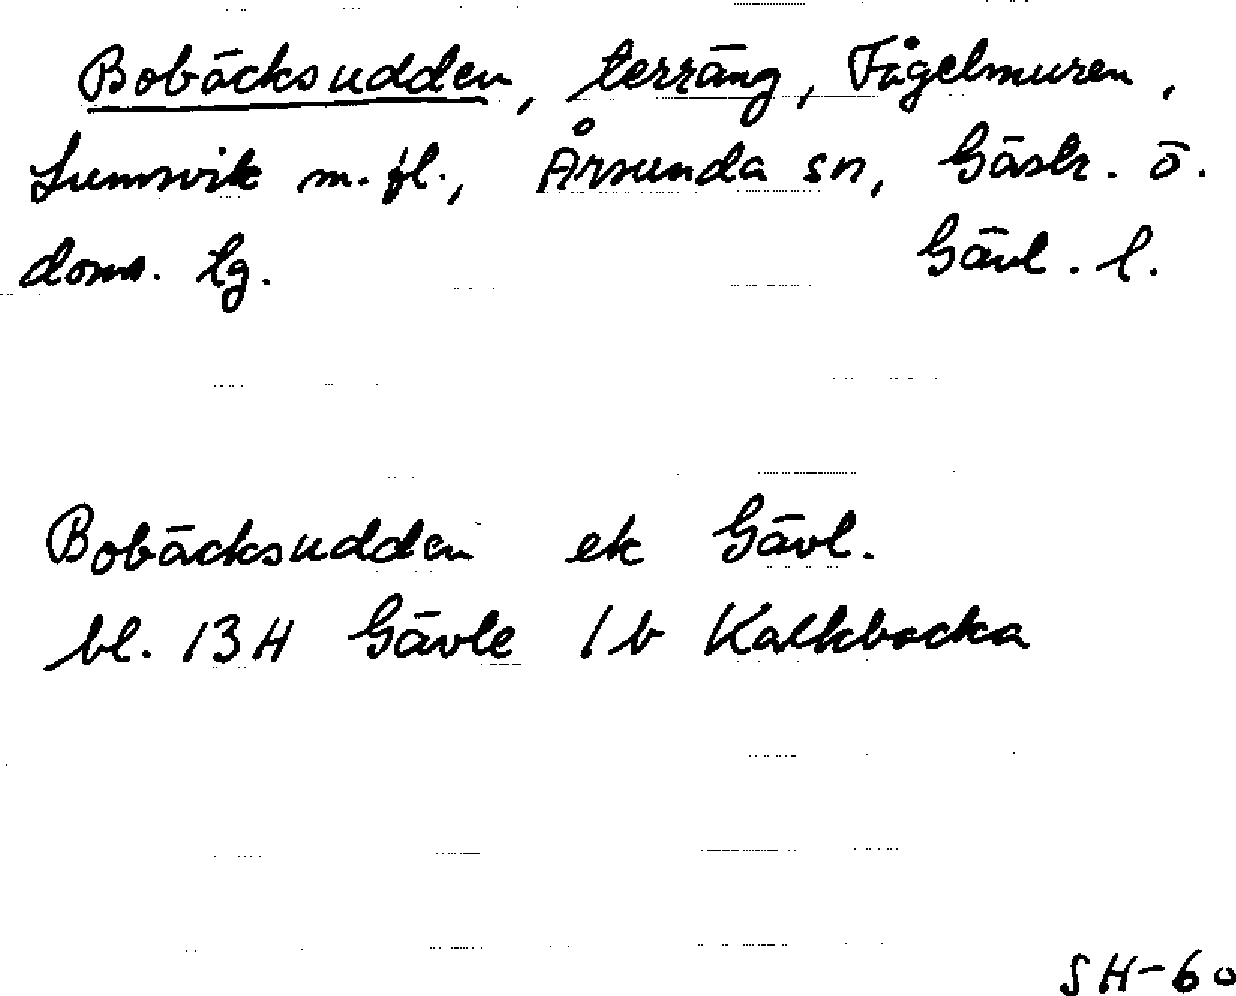 Bobäcksudden, terräng, Fågelmuren,
Lumsvik m.fl., Årsunda sn, Gästr. ö.
doms. lg. Gävl. l.
Bobäcksudden ek Gävl.
bl. 13H Gävle 1b Kalkbacka
SH-60